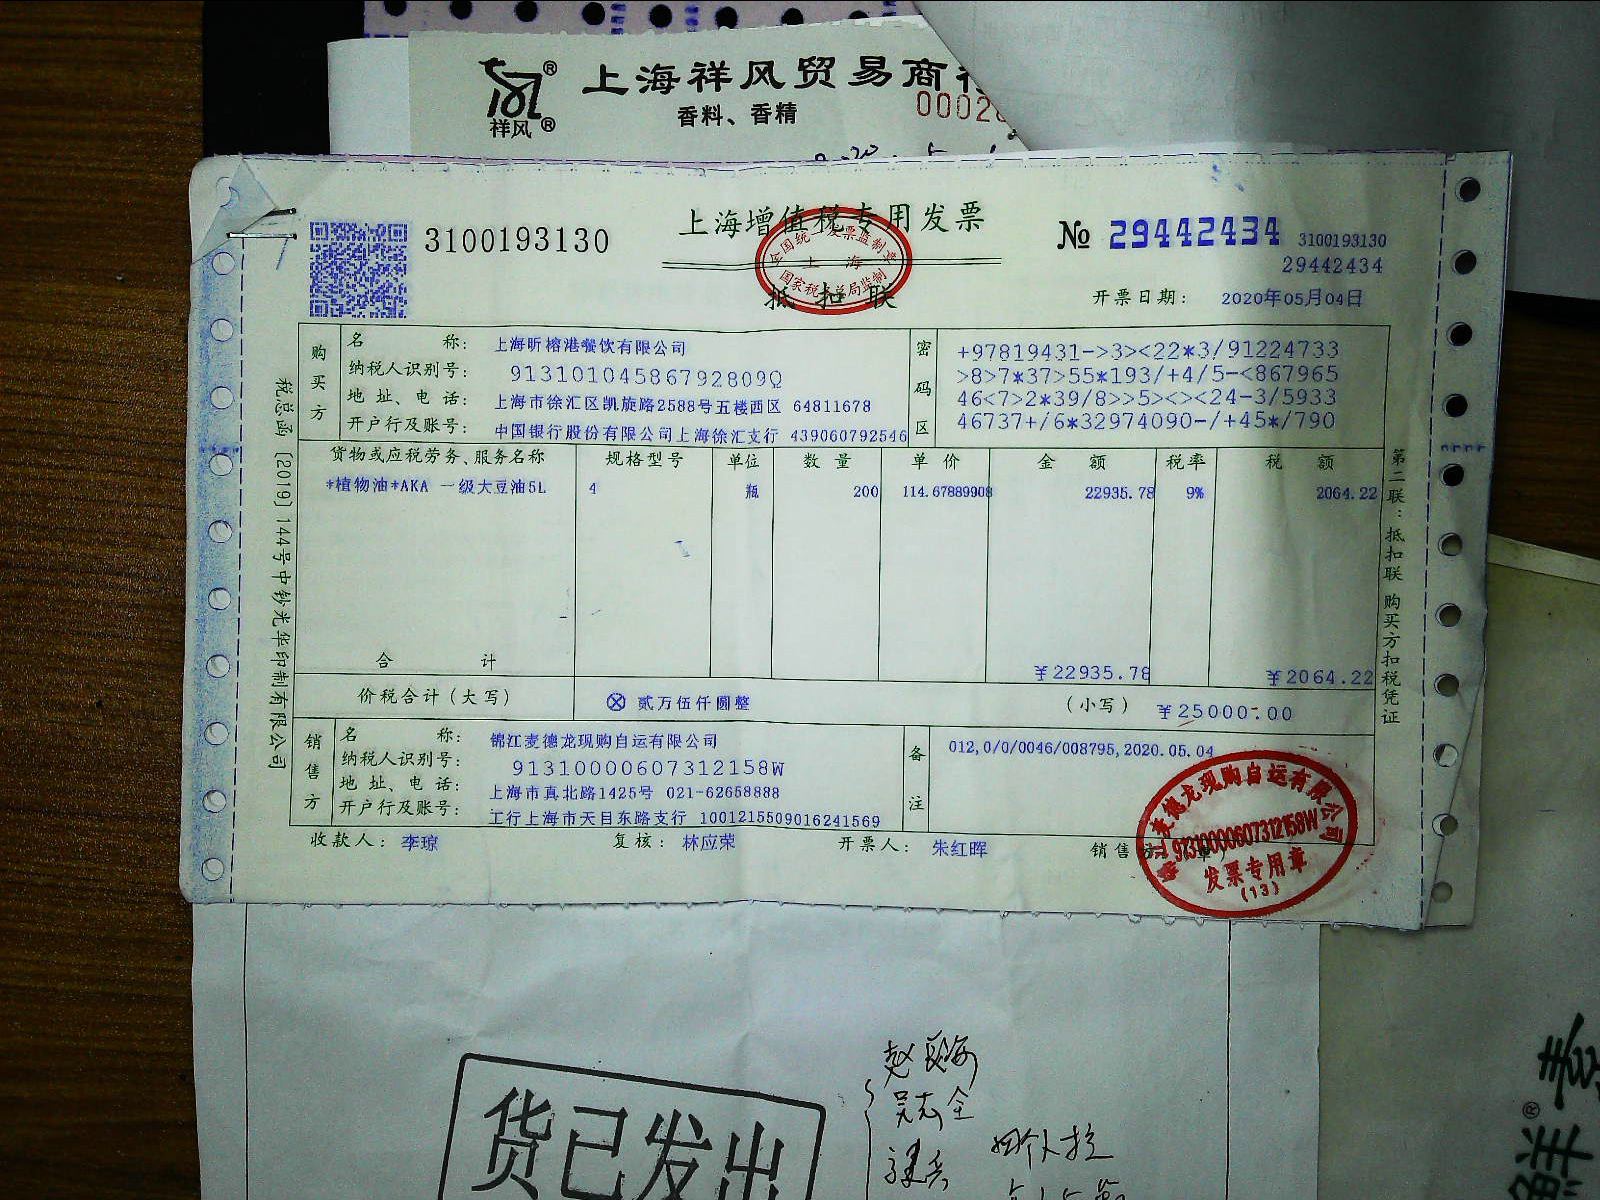 上海祥风贸易商
祥风
香料、香精
上海增值税专用发票
抵扣联
3100193130
№ 29442434
3100193130
29442434
开票日期： 2020年05月04日
购买方
名称： 上海昕榕港餐饮有限公司
纳税人识别号： 91310104586792809Q
地址、电话： 上海市徐汇区凯旋路2588号五楼西区 64811678
开户行及账号： 中国银行股份有限公司上海徐汇支行 439060792546
密码区
+97819431->3><22*3/91224733
>8>7*37>55*193/+4/5-<867965
46<7>2*39/8>>5><><24-3/5933
46737+/6*32974090-/+45*/790
货物或应税劳务、服务名称 规格型号 单位 数量 单价 金额 税率 税额
*植物油*AKA 一级大豆油5L 4 瓶 200 114.67889908 22935.78 9% 2064.22
合计 ￥22935.78 ￥2064.22
价税合计（大写） ⊗ 贰万伍仟圆整 （小写） ￥25000.00
销售方
名称： 锦江麦德龙现购自运有限公司
纳税人识别号： 91310000607312158W
地址、电话： 上海市真北路1425号 021-62658888
开户行及账号： 工行上海市天目东路支行 1001215509016241569
备注
012,0/0/0046/008795,2020.05.04
收款人： 李琼 复核： 林应荣 开票人： 朱红晖 销售
锦江麦德龙现购自运有限公司
91310000607312158W
发票专用章
(13)
税总函[2019]144号中钞光华印制有限公司
第二联：抵扣联 购买方扣税凭证
全国统一发票监制章
上海
国家税务总局监制
货已发出